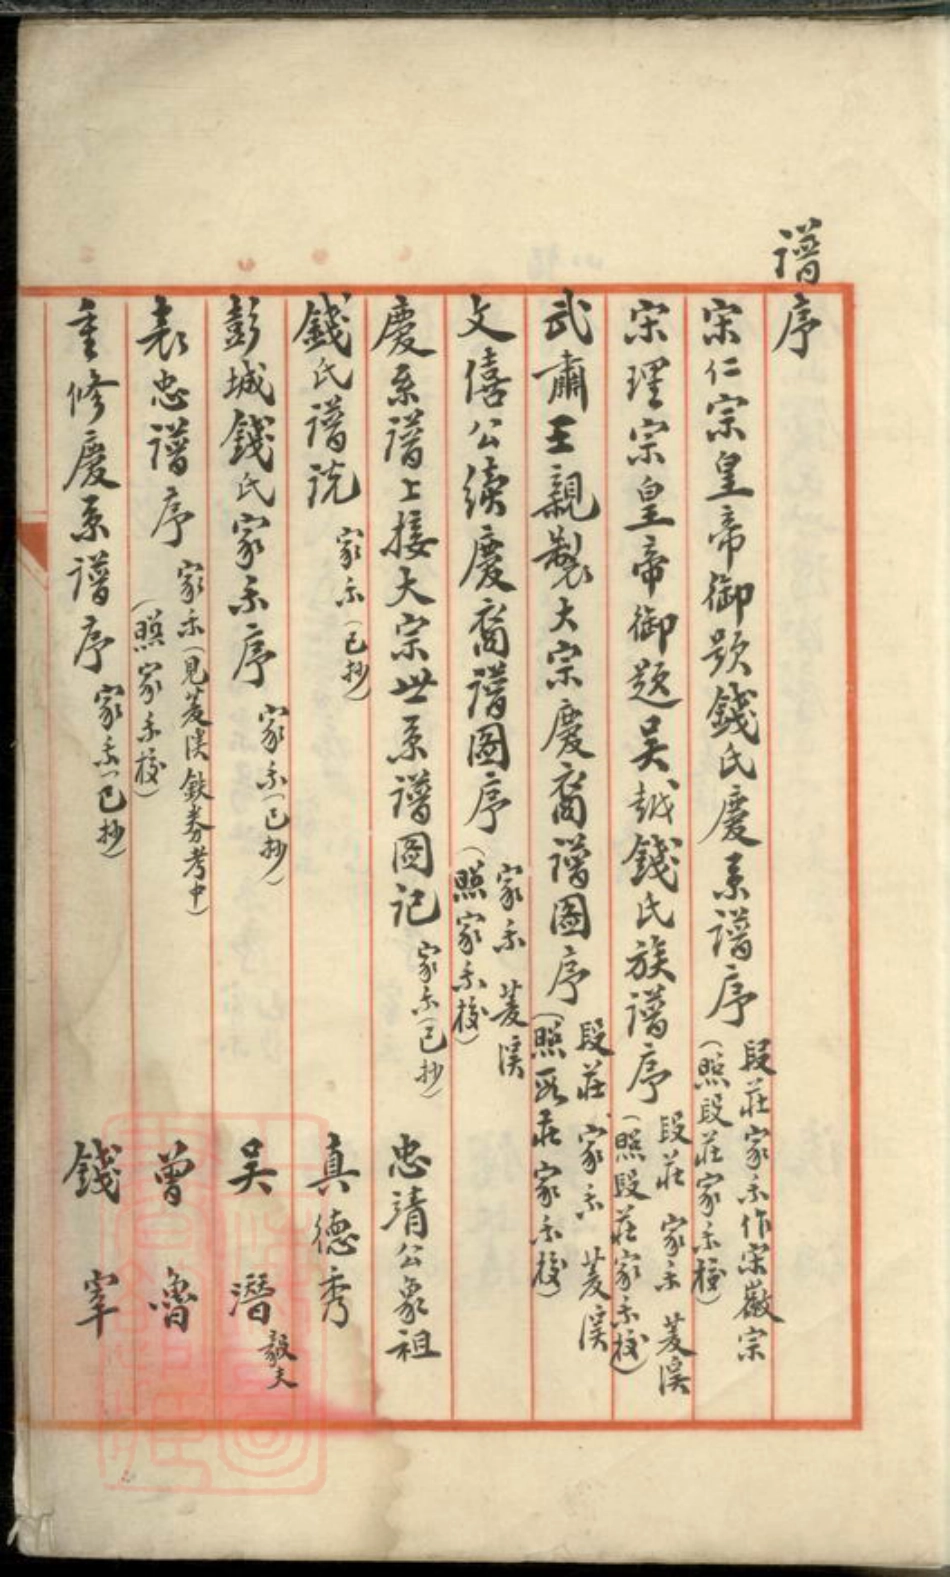 譜序
宋仁宗皇帝御題錢氏慶系譜序 段莊家乘作宋徽宗
(照段莊家乘校)
宋理宗皇帝御題吳越錢氏族譜序 段莊 家乘 菱溪
(照段莊家乘校)
武肅王親製大宗慶裔譜圖序 段莊 家乘 菱溪
(照段莊家乘校)
文僖公續慶裔譜圖序 家乘 菱溪
(照家乘校)
慶系譜上接大宗世系譜圖記 家乘(已抄) 忠清公象祖
錢氏譜說 家乘(已抄) 真德秀
彭城錢氏家乘序 家乘(已抄) 吳潛 毅夫
表忠譜序 家乘(見菱溪鉄券考中) 曾魯
(照家乘校)
重修慶系譜序 家乘(已抄) 錢宰